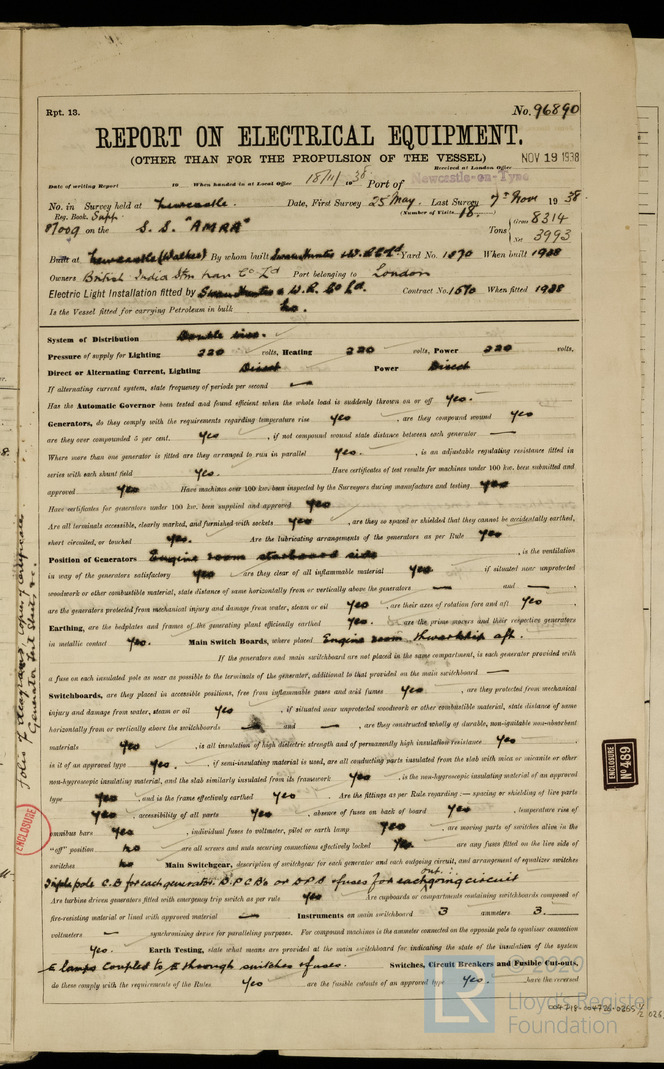 Rpt. 13.
No. 96890
REPORT ON ELECTRICAL EQUIPMENT.
(OTHER THAN FOR THE PROPULSION OF THE VESSEL)
Received at London Office NOV 19 1938
Date of writing Report 19 When handed in at Local Office 18/11/1938 Port of Newcastle-on-Tyne
No. in Survey held at Newcastle. Date, First Survey 25 May. Last Survey 7th Nov 1938.
Reg. Book. Supp (Number of Visits 18.)
87009 on the S.S. "AMRA" Tons Gross 8314
Net 3993
Built at Newcastle (Walker) By whom built Swan Hunter & W.R. Co Ld Yard No. 1570 When built 1938
Owners British India Stm Nav Co Ld Port belonging to London
Electric Light Installation fitted by Swan Hunter & W.R. Co Ld. Contract No. 1570 When fitted 1938
Is the Vessel fitted for carrying Petroleum in bulk No.
System of Distribution Double wire.
Pressure of supply for Lighting 220 volts, Heating 220 volts, Power 220 volts,
Direct or Alternating Current, Lighting Direct Power Direct
If alternating current system, state frequency of periods per second —
Has the Automatic Governor been tested and found efficient when the whole load is suddenly thrown on or off Yes.
Generators, do they comply with the requirements regarding temperature rise Yes, are they compound wound Yes
are they over compounded 5 per cent. Yes, if not compound wound state distance between each generator —
Where more than one generator is fitted are they arranged to run in parallel Yes., is an adjustable regulating resistance fitted in
series with each shunt field Yes. Have certificates of test results for machines under 100 kw. been submitted and
approved Yes Have machines over 100 kw. been inspected by the Surveyors during manufacture and testing Yes
Have certificates for generators under 100 kw. been supplied and approved Yes
Are all terminals accessible, clearly marked, and furnished with sockets Yes, are they so spaced or shielded that they cannot be accidentally earthed,
short circuited, or touched Yes. Are the lubricating arrangements of the generators as per Rule Yes
Position of Generators Engine room starboard side, is the ventilation
in way of the generators satisfactory Yes are they clear of all inflammable material Yes if situated near unprotected
woodwork or other combustible material, state distance of same horizontally from or vertically above the generators — and —,
are the generators protected from mechanical injury and damage from water, steam or oil Yes, are their axes of rotation fore and aft Yes,
Earthing, are the bedplates and frames of the generating plant efficiently earthed Yes. are the prime movers and their respective generators
in metallic contact Yes. Main Switch Boards, where placed Engine room thwartship aft.
If the generators and main switchboard are not placed in the same compartment, is each generator provided with
a fuse on each insulated pole as near as possible to the terminals of the generator, additional to that provided on the main switchboard —
Switchboards, are they placed in accessible positions, free from inflammable gases and acid fumes Yes, are they protected from mechanical
injury and damage from water, steam or oil Yes, if situated near unprotected woodwork or other combustible material, state distance of same
horizontally from or vertically above the switchboards — and —, are they constructed wholly of durable, non-ignitable non-absorbent
materials Yes, is all insulation of high dielectric strength and of permanently high insulation resistance Yes,
is it of an approved type Yes., if semi-insulating material is used, are all conducting parts insulated from the slab with mica or micanite or other
non-hygroscopic insulating material, and the slab similarly insulated from its framework Yes, is the non-hygroscopic insulating material of an approved
type Yes, and is the frame effectively earthed Yes. Are the fittings as per Rule regarding:— spacing or shielding of live parts
Yes, accessibility of all parts Yes, absence of fuses on back of board Yes, temperature rise of
omnibus bars Yes, individual fuses to voltmeter, pilot or earth lamp Yes, are moving parts of switches alive in the
"off" position no are all screws and nuts securing connections effectively locked Yes are any fuses fitted on the live side of
switches no Main Switchgear, description of switchgear for each generator and each outgoing circuit, and arrangement of equalizer switches
Triple pole C.B for each generator. D.P.C.B's or D.P.S & fuses for each outgoing circuit
Are turbine driven generators fitted with emergency trip switch as per rule Yes Are cupboards or compartments containing switchboards composed of
fire-resisting material or lined with approved material — Instruments on main switchboard 3 ammeters 3.
voltmeters — synchronising device for paralleling purposes. For compound machines is the ammeter connected on the opposite pole to equaliser connection
Yes. Earth Testing, state what means are provided at the main switchboard for indicating the state of the insulation of the system
E lamps coupled to E through switches & fuses. Switches, Circuit Breakers and Fusible Cut-outs,
do these comply with the requirements of the Rules Yes are the fusible cutouts of an approved type Yes. have the reversed
ENCLOSURE
ENCLOSURE
No 489
© 2020
Lloyd's Register
Foundation
LR
004718-004726-0265 1/2